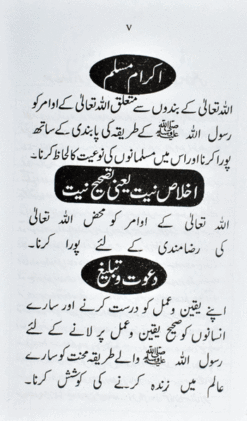 ۷
اکرام مسلم
اللہ تعالیٰ کے بندوں سے متعلق اللہ تعالیٰ کے اوامر کو
رسول اللہ ﷺ کے طریقہ کی پابندی کے ساتھ
پورا کرنا اور اس میں مسلمانوں کی نوعیت کا لحاظ کرنا۔
اخلاص نیت یعنی تصحیح نیت
اللہ تعالیٰ کے اوامر کو محض اللہ تعالیٰ
کی رضامندی کے لئے پورا کرنا۔
دعوت و تبلیغ
اپنے یقین وعمل کو درست کرنے اور سارے
انسانوں کو صحیح یقین وعمل پر لانے کے لئے
رسول اللہ ﷺ والے طریقہ محنت کو سارے
عالم میں زندہ کرنے کی کوشش کرنا۔